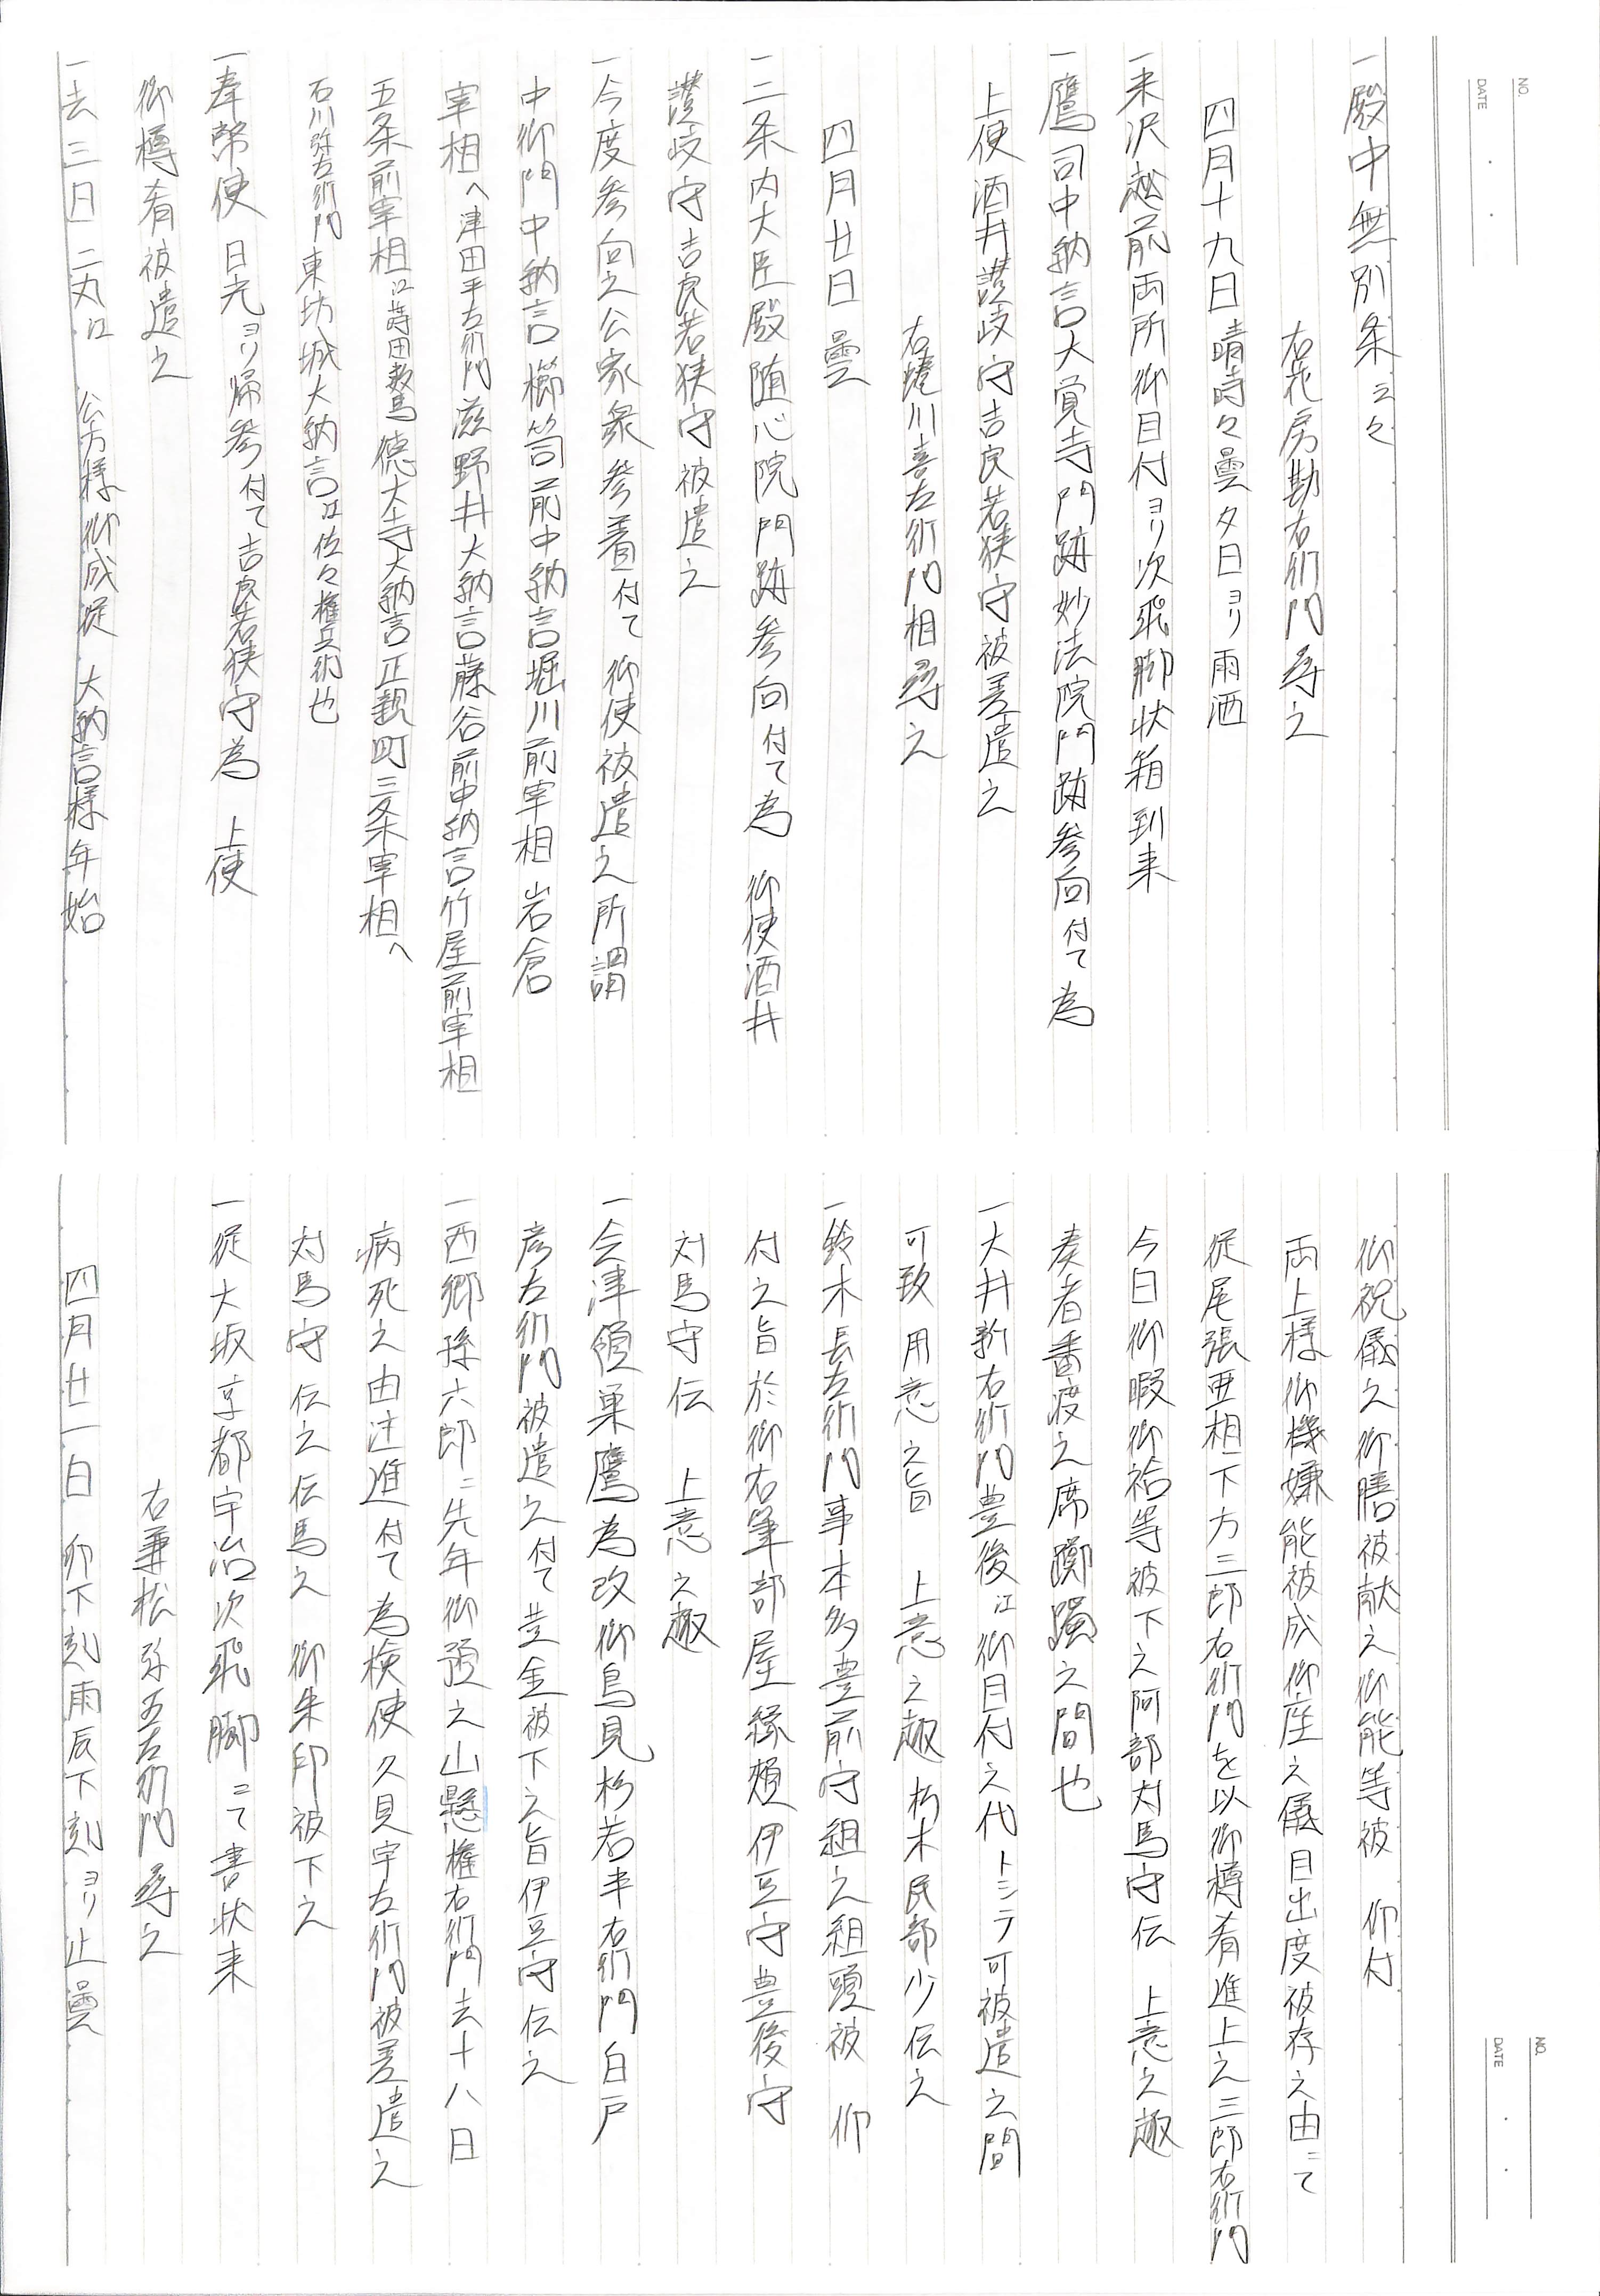 NO.
DATE
一殿中無別条云々
右花房勘右衛門尋之
四月十九日 晴時々曇夕日ヨリ雨洒
一米沢越前両所御目付ヨリ次飛脚状箱到来
一鷹司中納言大覚寺門跡妙法院門跡参向付て為
上使酒井讃岐守吉良若狭守被差遣之
右蜷川喜左衛門相尋之
四月廿日 曇
一二条内大臣殿随心院門跡参向付て為 御使酒井
讃岐守吉良若狭守被遣之
一今度参向之公家衆参着付て御使被遣之所謂
中御門中納言櫛笥前中納言堀川前宰相岩倉
宰相へ津田平左衛門滋野井大納言藤谷前中納言竹屋前宰相
五条前宰相江蒔田数馬徳大寺大納言正親町三条宰相へ
石川弥左衛門東坊城大納言江佐々権兵衛也
一奉幣使日光ヨリ帰参付て吉良若狭守為 上使
御樽肴被遣之
一去三日二丸江 公方様御成従 大納言様年始
NO.
DATE
御祝儀之御膳被献之御能等被 仰付
両上様御機嫌能被成御座之儀目出度被存之由ニて
従尾張亜相下方三郎右衛門を以御樽肴進上之三郎右衛門
今日御暇御袷等被下之阿部対馬守伝 上意之趣
奏者番渡之席躑躅之間也
一大井新右衛門豊後江御目付之代トシテ可被遣之間
可致用意之旨 上意之趣朽木民部少伝之
一鈴木長左衛門事本多豊前守組之組頭被 仰
付之旨於御右筆部屋縁頬伊豆守豊後守
対馬守伝 上意之趣
一会津領巣鷹為改御鳥見杉若半右衛門白戸
彦左衛門被遣之付て並金被下之旨伊豆守伝之
一西郷孫六郎ニ先年御預之山懸権右衛門去十八日
病死之由注進付て為検使久貝宇左衛門被差遣之
対馬守伝之伝馬之 御朱印被下之
一従大坂京都宇治次飛脚ニて書状来
右兼松弥五左衛門尋之
四月廿一日 卯下刻雨辰下刻ヨリ止曇